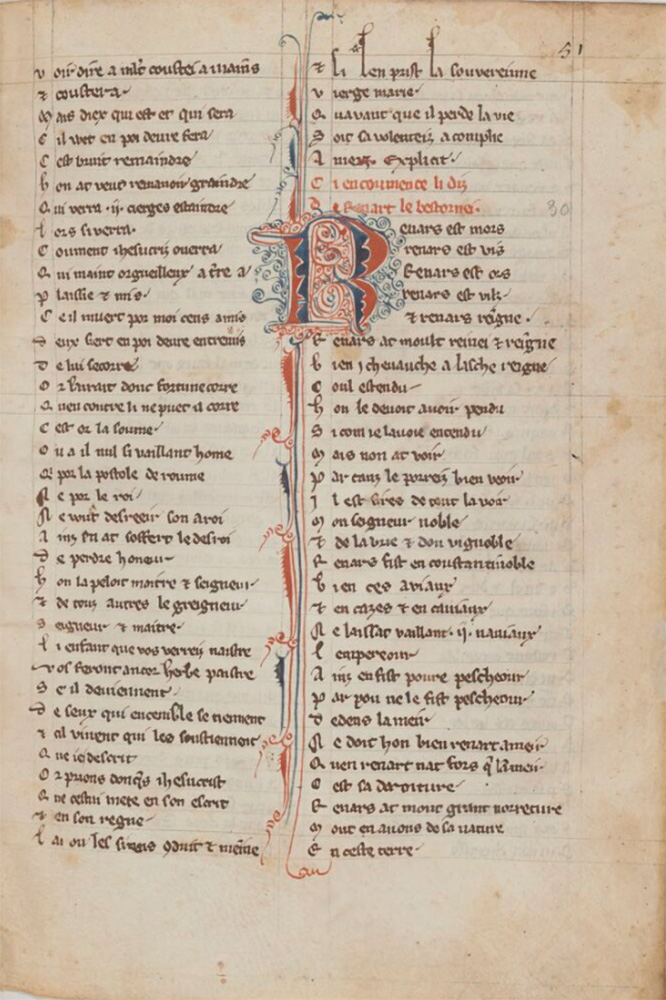 51
V oir dire a mlt couste a mains
⁊ coustera
M ais diex qui est et qui sera
S il wet en poi deure fera
C est bruit remaindre
L on at veut remanoir graindre
Q ui verra .ij. cierges estaindre
L ors si verra
C oument ihesucriz ouerra
Q ui maint orgueilleux a t're a
P laissie ⁊ mis
C eil muert por moi cens amis
D eux fiert en poi deure entremis
D e lui secorre
O r lairat donc fortune corre
Q uen contre li ne puet il corre
C est or la soume
O u a il nul si vaillant home
Q' por la postole de roume
N e por le roi
N e wout desreeir son aroi
A inz en at soffert le desroi
D e perdre honeur
H on lapeloit moitre ⁊ seigneur
⁊ de touz autres le greigneur
S eigneur ⁊ maitre
L i enfant que vos verreiz naistre
V os feront ancor herbe paistre
S e il deuiennent
D e seux qui encemble se tiennent
⁊ cil viuent qui les soustiennent
Q ue ie descrit
O r prions donq's ihesucrist
Q ue cestui mete en son escrit
⁊ en son regne
L ai ou les siens 9duit ⁊ meinne
⁊ si len prist la souvereinne
V ierge marie
Q uauant que il perde la vie
S oit sa volenteiz acomplie
A men. Explicit
C i encoumence li diz
De Renart le bestornei. 30
Renars est mors
renars est vis
Renars est ors
renars est vilz
⁊ renars reigne
R enars at moult reinei ⁊ reigne
B ien j cheuauche a lasche reigne
C oul estendu
H on le deuoit auoir pendu
S i com ie lauoie entendu
M ais non at voir
P ar tanz le porreiz bien veoir
I l est sires de tout lauoir
M on seigneur noble
⁊ de la brie ⁊ dou vignoble
R enars fist en coustantinoble
B ien ces aviaux
⁊ en cazes ⁊ en cauiaux
N e laissat vaillant .ij. nauiaux
L empereour
A inz en fist poure pescheour
P ar pou ne le fist pescheour
D edens la meir
N e doit hon bien renart ameir
Q uen renart nat fors q' lameir
C est sa droiture
R enars at mout grant norreture
M out en auons de sa nature
E n ceste terre